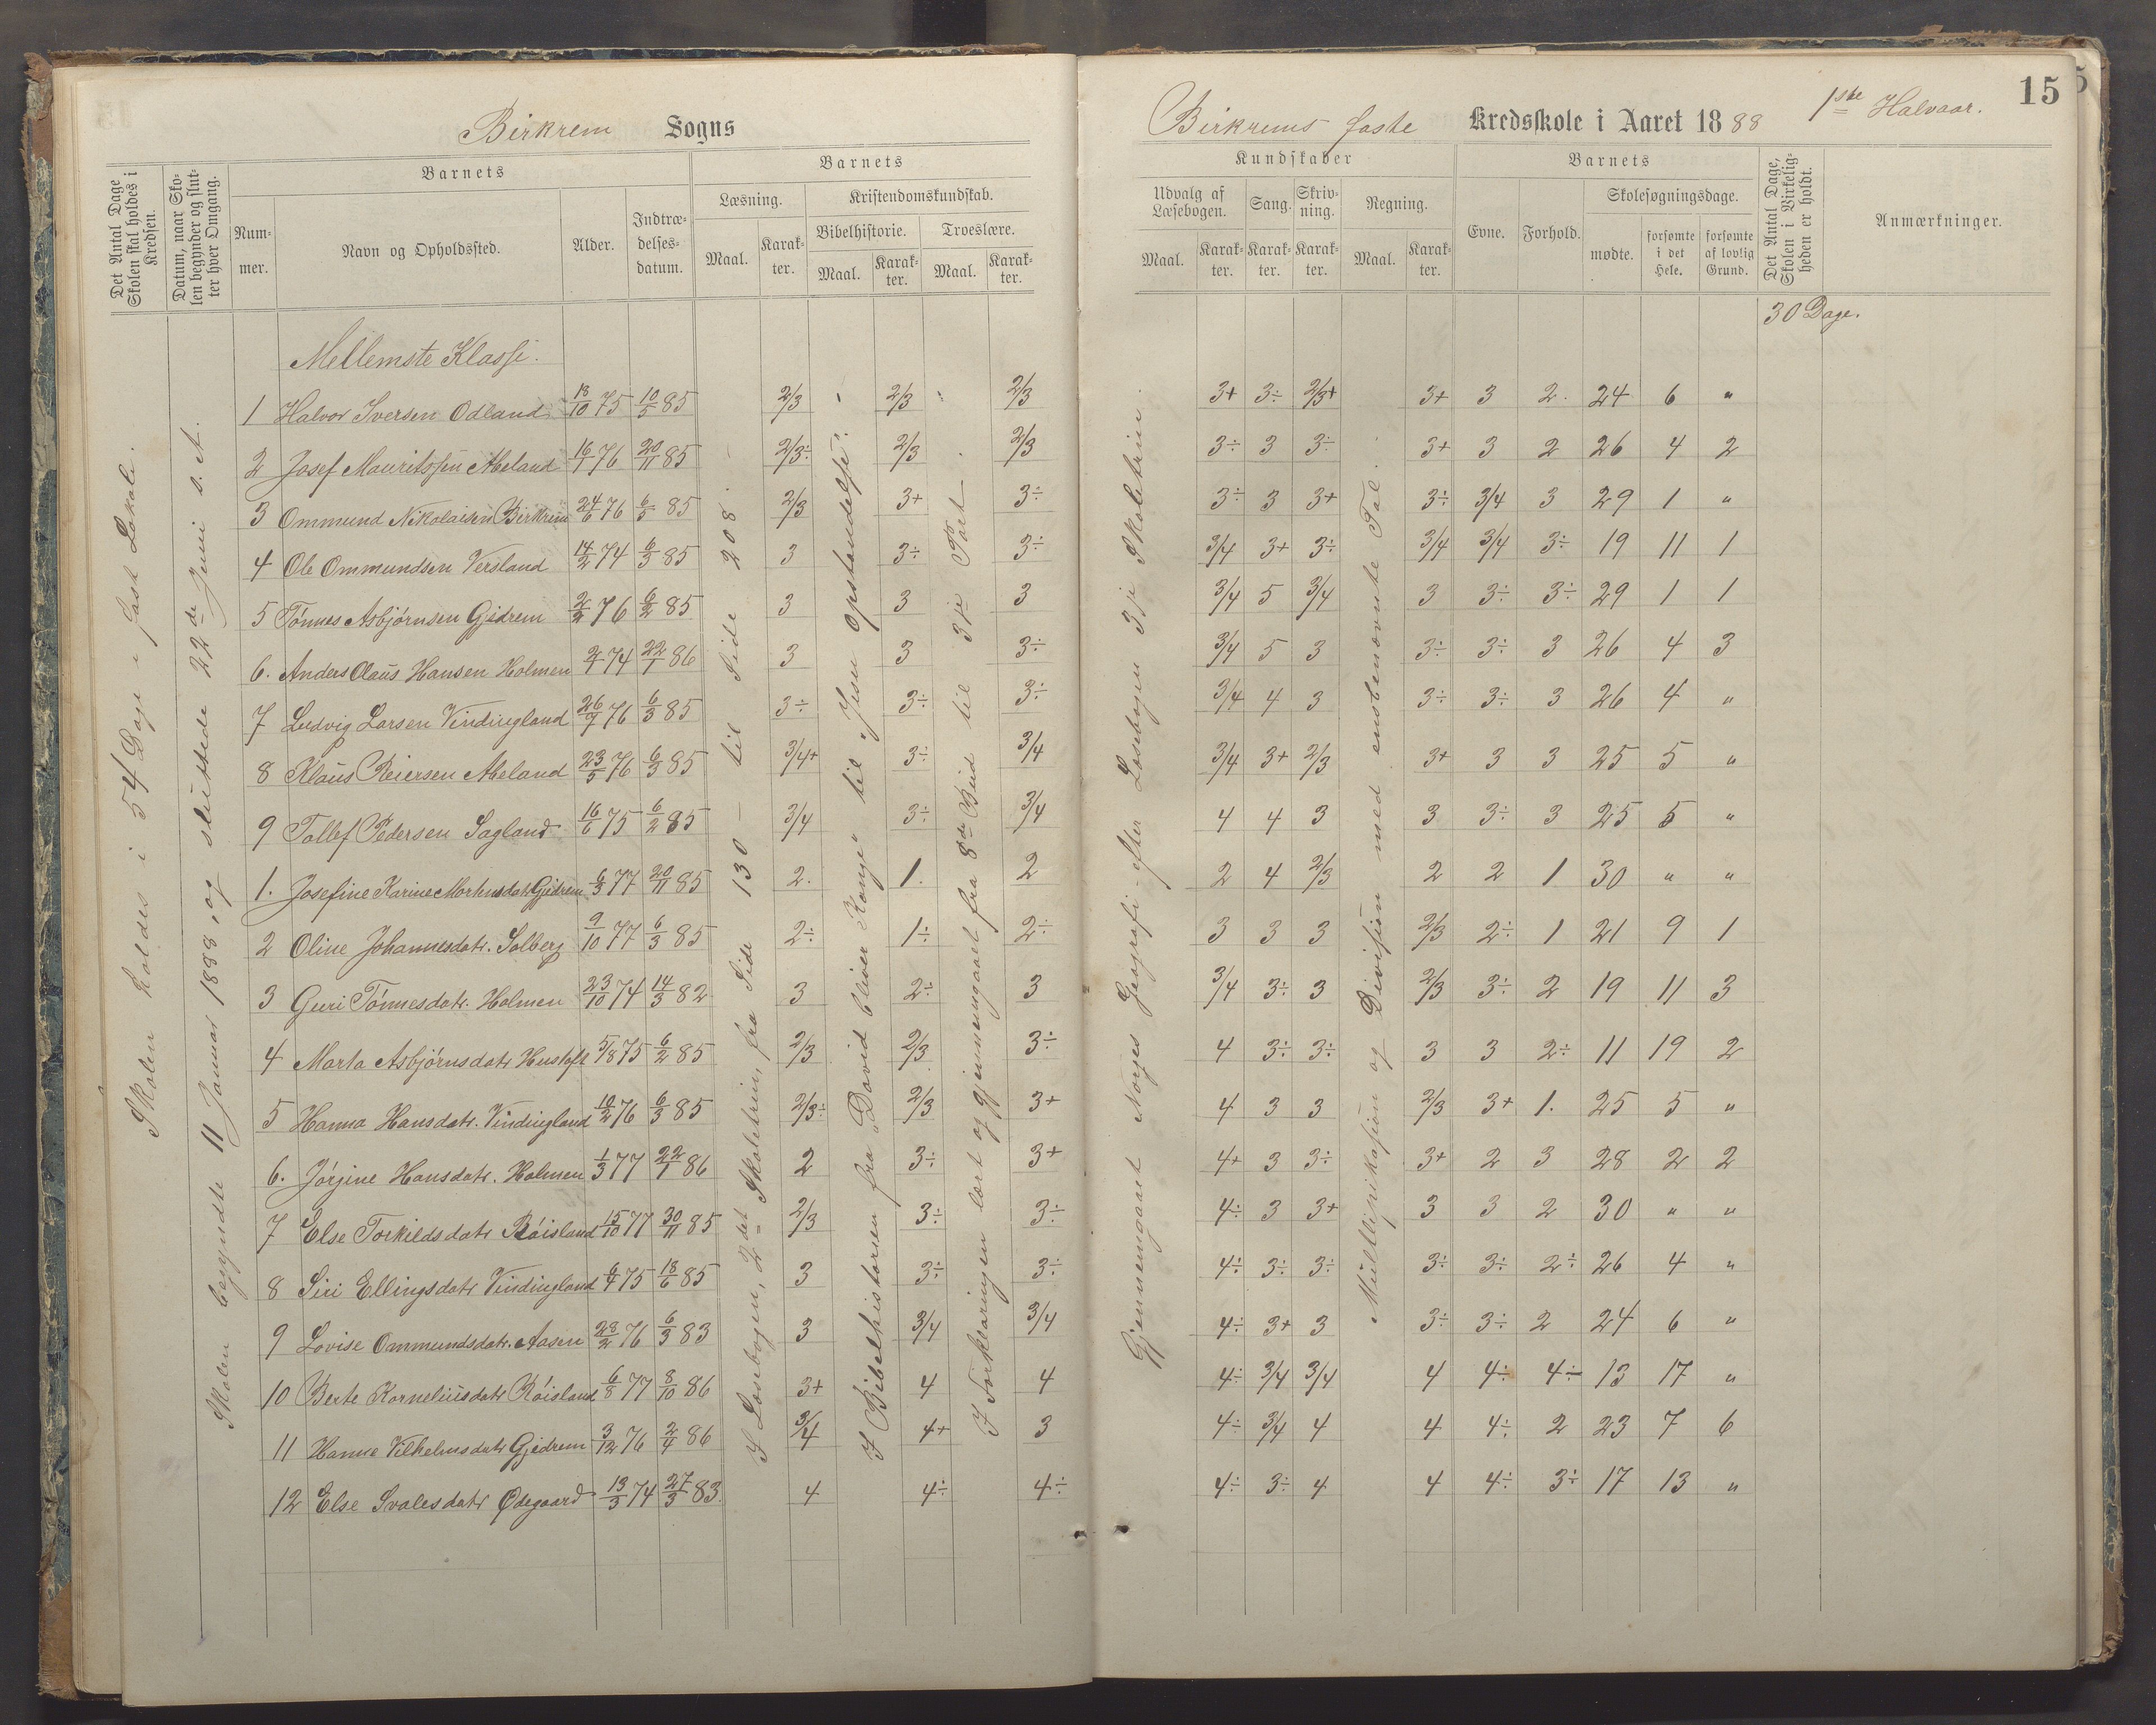 Birkrem Sogns
Birkrems faste Kredsskole i Aaret 1888 1ste Halvaar.
15
Det Antal Dage Skolen skal holdes i Kredsen.
Datum, naar Skolen begynder og slutter hver Omgang.
Barnets
Nummer.
Navn og Opholdssted.
Alder.
Indtrædelsesdatum.
Barnets
Læsning.
Maal.
Karakter.
Kristendomskundskab.
Bibelhistorie.
Maal.
Karakter.
Troeslære.
Maal.
Karakter.
Kundskaber
Udvalg af Læsebogen.
Maal.
Karakter.
Sang.
Karakter.
Skrivning.
Karakter.
Regning.
Maal.
Karakter.
Barnets
Evne.
Forhold.
Skolesøgningsdage.
mødte.
forsømte i det Hele.
forsømte af lovlig Grund.
Det Antal Dage, Skolen i Virkeligheden er holdt.
Anmærkninger.
Skolen holdes i 54 Dage i fast Lokale.
Skolen begyndte 11 Januar 1888, og sluttede 22de Juni s. A.
I Læsebogen, 2det Skoletrin, fra Side 130 – til Side 208.
I Bibelhistorien fra „David bliver Konge" til „Jesu Opstandelse".
I Forklaringen lært og gjennemgaaet fra 8de Bud til 3je Part.
Gjennemgaaet Norges Geografi – efter Læsebogen 3je Skoletrin.
Multiplikasjon og Divisjon med ensbenævnte Tal.
30 Dage.
Mellemste Klasse.
1 Halvor Iversen Odland 18/10 75 10/5 85 2/3 2/3 2/3 3+ 3÷ 2/3+ 3+ 3 2. 24 6 "
2 Josef Mauritssen Abeland 16/1 76 20/11 85 2/3÷ 2/3 2/3 3÷ 3 3÷ 3+ 3 2 26 4 2
3 Ommund Nikolaisen Birkrem 24/6 76 6/5 85 2/3 3+ 3÷ 3÷ 3 3+ 3÷ 3/4 3 29 1 "
4 Ole Ommundsen Versland 14/2 74 6/3 85 3 3÷ 3÷ 3/4 3+ 3÷ 3/4 3/4 3÷ 19 11 1
5 Tönnes Asbjörnsen Gjedrem 2/2 76 6/2 85 3 3 3 3/4 5 3/4 3 3÷ 3÷ 29 1 1
6. Anders Olaus Hansen Holmen 2/1 74 22/1 86 3 3 3÷ 3/4 5 3 3÷ 3÷ 3 26 4 3
7 Ludvig Larsen Vindingland 26/7 76 6/3 85 3÷ 3÷ 3÷ 3/4 4 3 3÷ 3÷ 3 26 4 "
8 Klaus Reiersen Abeland 23/5 76 6/3 85 3/4+ 3÷ 3/4 3/4 3+ 2/3 3+ 3 3 25 5 "
9 Tollef Pedersen Sagland 16/6 75 6/2 85 3/4 3÷ 3/4 4 4 3 3 3÷ 3 25 5 "
1. Josefine Karine Markusdatr Gjedrem 6/3 77 20/11 85 2. 1. 2 2 4 2/3 2 2 1 30 " "
2 Oline Johannesdatr. Solberg 9/10 77 6/3 85 2÷ 1÷ 2÷ 3 3 3 2/3 2÷ 1 21 9 1
3 Guri Tönnesdatr. Holmen 23/10 74 14/3 82 3 2÷ 3 3/4 3÷ 3 2/3 3÷ 2 19 11 3
4 Marta Asbjörnsdatr Hustoft 5/8 75 6/2 85 2/3 2/3 3÷ 4 3÷ 3÷ 3 3 2÷ 11 19 2
5 Hanna Hansdatr. Vindingland 10/2 76 6/3 85 2/3÷ 2/3 3+ 4 3 3 2/3 3+ 1. 25 5 "
6. Jörgine Hansdatr. Holmen 1/3 77 22/1 86 2 3÷ 3+ 4+ 3 3÷ 3+ 2 3 28 2 2
7 Else Torkildsdatr Röisland 15/10 77 30/11 85 2/3 3÷ 3÷ 4÷ 3 3+ 3 3 2 30 " "
8 Siri Ellingsdatr Vindingland 6/4 75 18/6 85 3 3÷ 3÷ 4÷ 3÷ 3÷ 3÷ 3÷ 2÷ 26 4 "
9 Lovise Ommundsdatr. Aasen 28/2 76 6/3 83 3 3/4 3/4 4÷ 3+ 3 3÷ 3÷ 2 24 6 "
10 Berte Korneliusdatr Röisland 6/8 77 8/10 86 3+ 4 4 4÷ 3/4 3/4 4 4÷ 4÷ 13 17 "
11 Hanne Vilhelmsdatr Gjedrem 3/12 76 2/4 86 3/4 4+ 3 4÷ 3/4 4 4 4÷ 2 23 7 6
12 Else Svalesdatr Ødegaard 13/3 74 27/3 83. 4 4÷ 4÷ 4÷ 3÷ 4 4 4÷ 3÷ 17 13 "